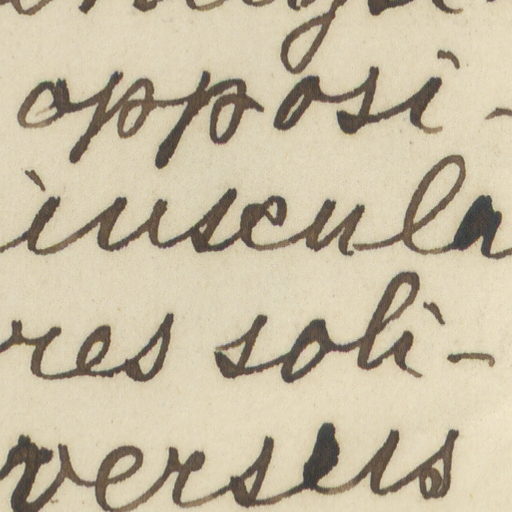 opposi-
inscula
res soli-
verseis